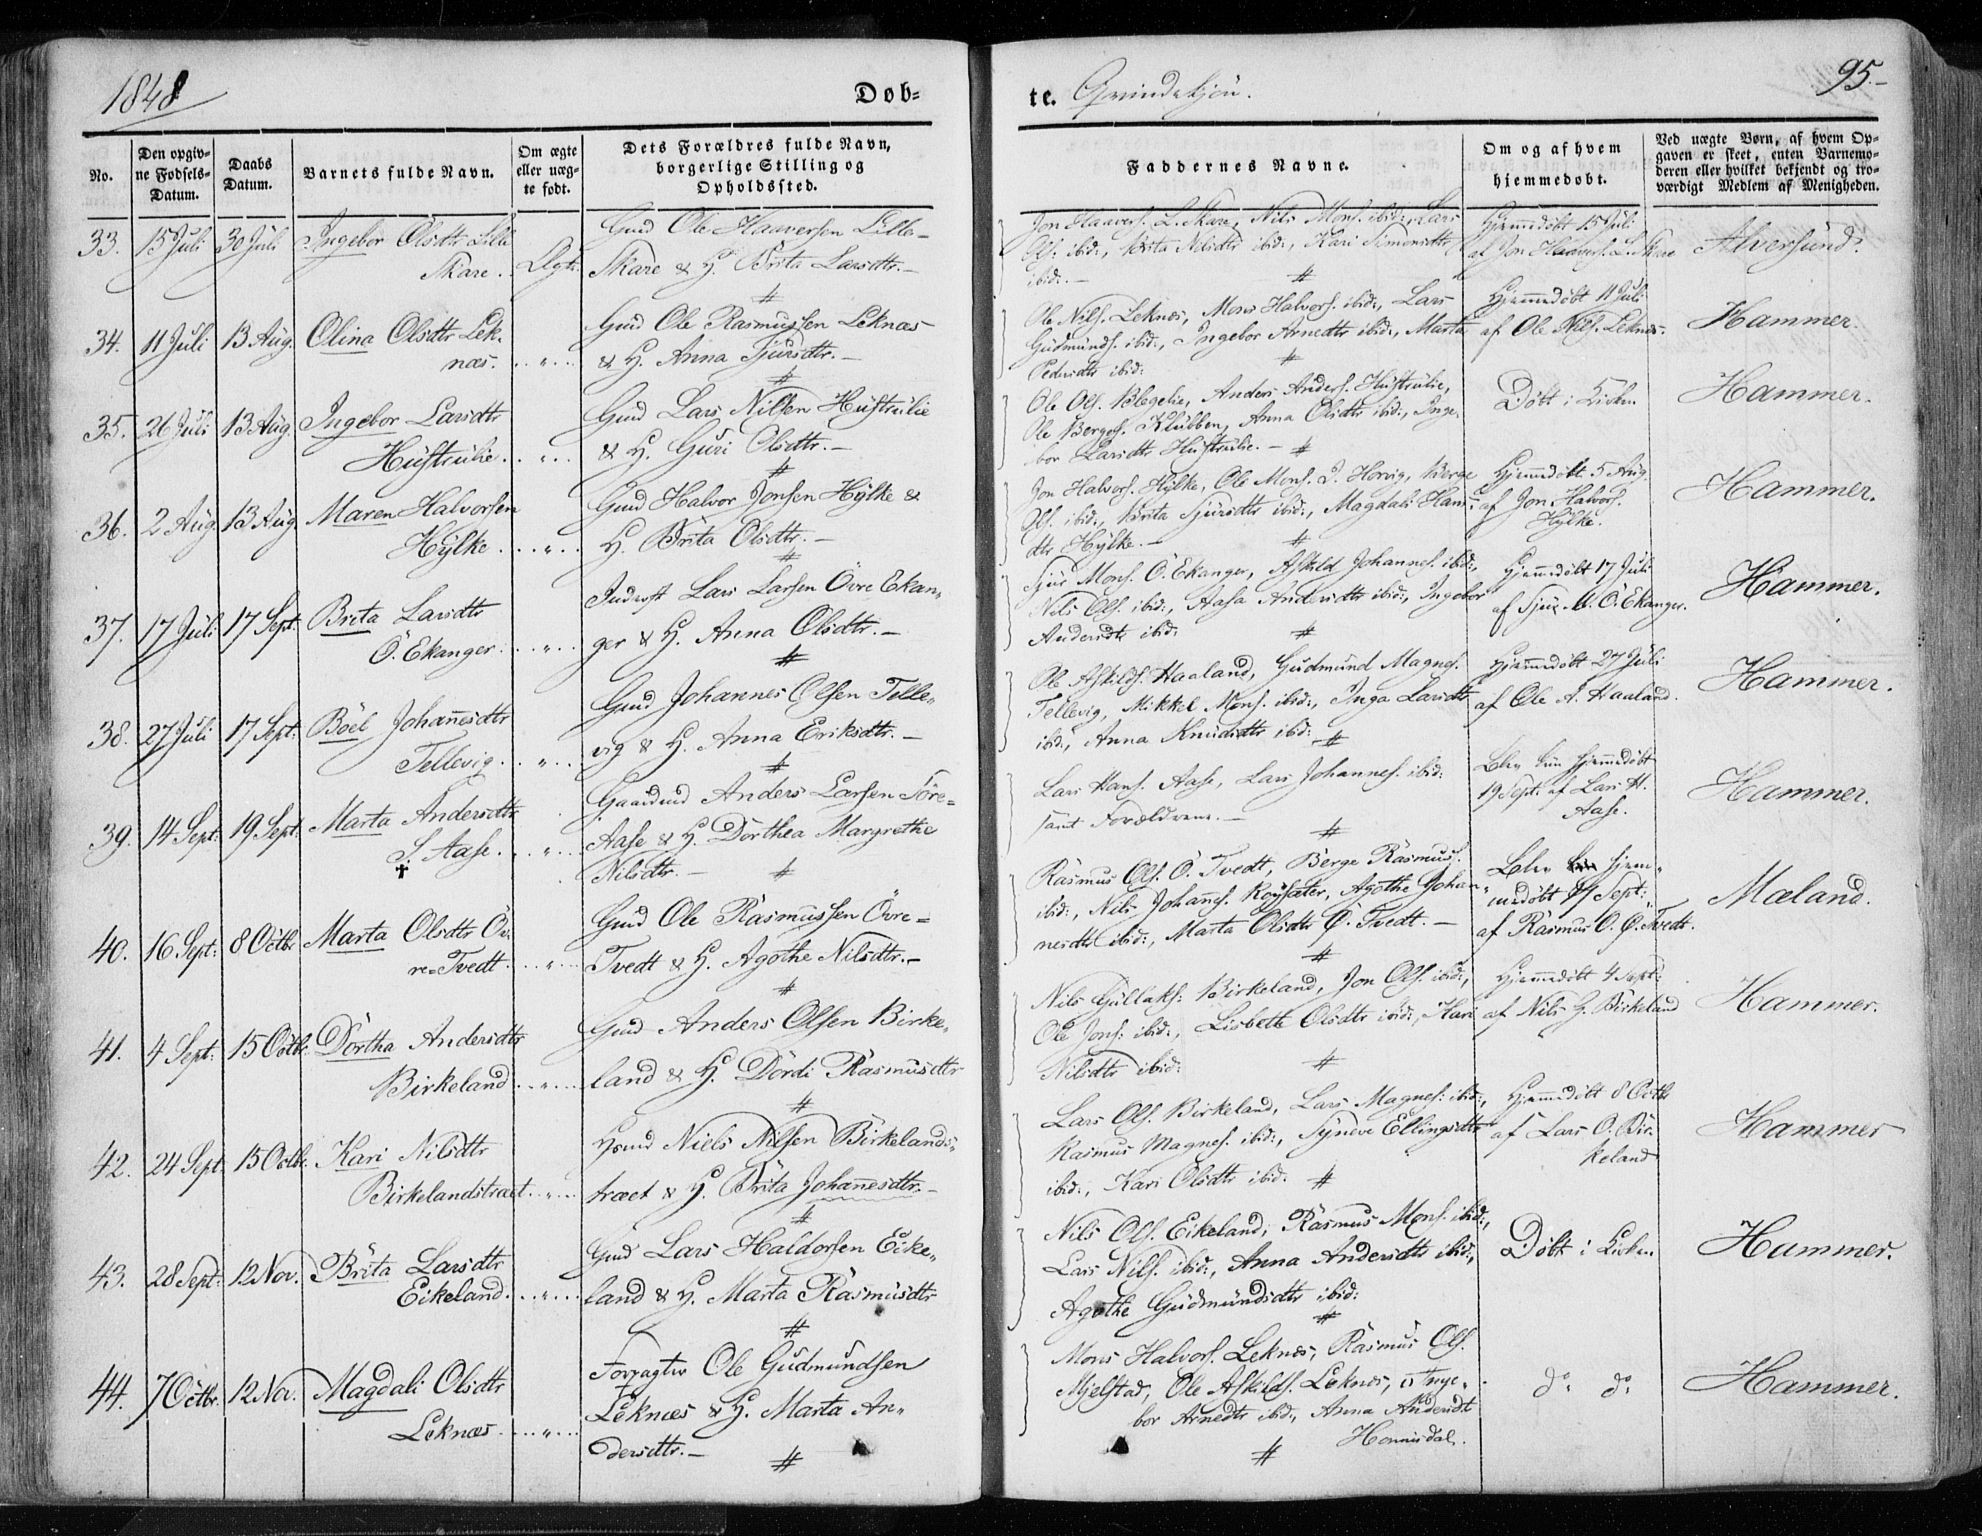 1848
Døb=
te. Qvindekjön.
95.-
No.
Den opgiv-
ne Fødsels-
Datum.
Daabs
Datum.
Barnets fulde Navn.
Om ægte
eller uæg-
te født.
Dets Forældres fulde Navn,
borgerlige Stilling og
Opholdssted.
Faddernes Navne.
Om og af hvem
hjemmedøbt.
Ved uægte Børn, af hvem Op-
gaven er skeet, enten Barnemo-
deren eller hvilket bekjendt og tro-
værdigt Medlem af Menigheden.
33. 15 Juli 30 Juli Ingebor Olsdtr Lille
Skare. Ægte
Gmd Ole Haaversen Lille-
Skare & H. Brita Larsdtr.-
Jon Haavers. L. Skare, Nils Mons. ibid:, Lars
Ols. ibid:, Brita Nilsdtr ibid:, Kari Simonsdtr
ibid:.-
Hjemmedöbt 15 Juli
af Jon Haavers. L. Skare
Alversund.
34. 11 Juli 13 Aug. Olina Olsdtr Lek-
næs. „
Gmd Ole Rasmussen Leknæs
& H. Anna Sjursdtr.-
Ole Nils. Leknæs, Mons Halvors. ibid:, Lars
Gudmunds. ibid:, Ingebor Arnedtr ibid:, Marta
Pedersdtr ibid:
Hjemmedöbt 11 Juli
af Ole Nils. Leknæs.
Hammer.
35. 26 Juli 13 Aug. Ingebor Larsdtr
Hustrulie. „
Gmd Lars Nilsen Hustrulie
& H. Guri Olsdtr.-
Ole Ols. Blegelie, Anders Anders. Hustrulie,
Ole Berges. Klubben, Anna Olsdtr ibid:, Inge-
bor Larsdtr Hustrulie.-
Döbt i Kirken
Hammer.
36. 2 Aug. 13 Aug. Maren Halvorsen
Hylke. „
Gmd Halvor Jonsen Hylke &
H. Brita Olsdtr.-
Jon Halvors. Hylke, Ole Mons. I. Horvig, Berge
Ols. ibid:, Brita Sjursdtr ibid:, Magdali Hans-
dtr Hylke.-
Hjemmedöbt 5 Aug.
af Jon Halvors.
Hylke.
Hammer.
37. 17 Juli 17 Sept: Brita Larsdtr
Ö. Ekanger. „
Inderst Lars Larsen Övre Ekan-
ger & H. Anna Olsdtr.-
Sjur Mons. Ö. Ekanger, Askild Johannes. ibid:,
Nils Ols. ibid:, Aasa Andersdtr ibid:, Ingebor
Andersdtr ibid:
Hjemmedöbt 17 Juli
af Sjur M. Ö. Ekanger.
Hammer.
38. 27 Juli 17 Sept: Böel Johannesdtr
Tellevig. „
Gmd Johannes Olsen Telle-
vig & H. Anna Eriksdtr.-
Ole Askilds. Haaland, Gudmund Magnes.
Tellevig, Mikkel Mons. ibid:, Inga Larsdtr
ibid:, Anna Knudsdtr ibid:
Hjemmedöbt 27 Juli
af Ole A. Haaland.
Hammer.
39. 14 Sept: 19 Sept: Marta Andersdtr
S. Aase. „
†
Gaardmd Anders Larsen Söre-
Aase & H. Dorthea Margrethe
Nilsdtr.-
Lars Hans. Aase, Lars Johannes. ibid:
samt Forældrene.-
Blev kun hjemmedöbt
19 Sept: af Lars H.
Aase.
Hammer.
40. 16 Sept: 8 Octbr Marta Olsdtr Öv-
re-Tvedt. „
Gmd Ole Rasmussen Övre-
Tvedt & H. Agothe Nilsdtr.-
Rasmus Ols. Ö. Tvedt, Berge Rasmus.
ibid:, Nils Johannes. Röysæter, Agothe Johan-
nesdtr ibid:, Marta Olsdtr Ö. Tvedt.-
Blev hjem-
medöbt Sept:
af Rasmus O. Ö. Tvedt.
Mæland.
41. 4 Sept: 15 Octbr. Dortha Andersdtr
Birkeland. „
Gmd Anders Olsen Birke-
land & H. Dördi Rasmusdtr
Nils Gullaks: Birkeland, Jon Ols. ibid:,
Ole Jons: ibid:, Lisbeth Olsdtr ibid:, Kari
Nilsdtr ibid:
Hjemmedöbt 4 Sept:
af Nils G. Birkeland
Hammer.
42. 24 Sept. 15 Octbr. Kari Nilsdtr
Birkelandstræet. „
Hmd Niels Nilsen Birkelands-
træet & H. Brita Johannesdtr.-
Lars Ols. Birkeland, Lars Magnes: ibid:,
Rasmus Magnes. ibid:, Syneve Ellingsdtr
ibid:, Kari Olsdtr ibid:
Hjemmedöbt 8 Octbr
af Lars O. Bir-
keland
Hammer
43. 28 Sept: 12 Nov. Brita Larsdtr
Eikeland. „
Gmd Lars Haldorsen Eike-
land & H. Marta Rasmusdtr
Nils Ols. Eikeland, Rasmus Mons. ibid:,
Lars Nils. ibid:, Anna Andersdtr ibid:,
Agothe Gudmundsdtr ibid:
Döbt i Kirken
Hammer.
44. 7 Octbr. 12 Nov. Magdali Olsdtr
Leknæs. „
Forpagter Ole Gudmundsen
Leknæs & H. Marta An-
dersdtr.-
Mons Halvors. Leknæs, Rasmus Ols.
Mjelstad, Ole Askilds. Leknæs, Inge-
bor Arnedtr ibid., Anna Andersdt
Honnisdal.
do do
Hammer.